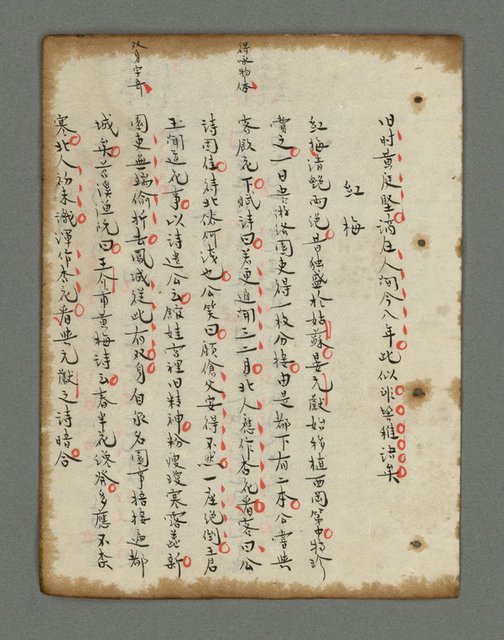 旧时黄庭堅謫在人间今八年此似非皆雅訣矣
紅梅
紅梅清艶两绝昔独盛於姑蘇晏元献始移植西岡第中特珍
賞之一日貴游賂園吏得一枝分接由是都下有二本公嘗與
客飲花下賦詩曰若更遅開三二月北人應作杏花看客曰公
詩固佳待北俗何浅也公笑曰顧傖父安得不然一座絶倒王君
玉聞遗花事以詩遗公云館娃宫裡旧精神粉瘦瓊寒露蕊新
園吏無端偷折去鳳城從此有双身自尔名園争培接遍都
城矣苕溪漁隐曰王介甫紅梅詩云春半花纔發多應不奈
寒北人初未識渾作杏花看與元献之詩暗合
得咏物体
双身字奇